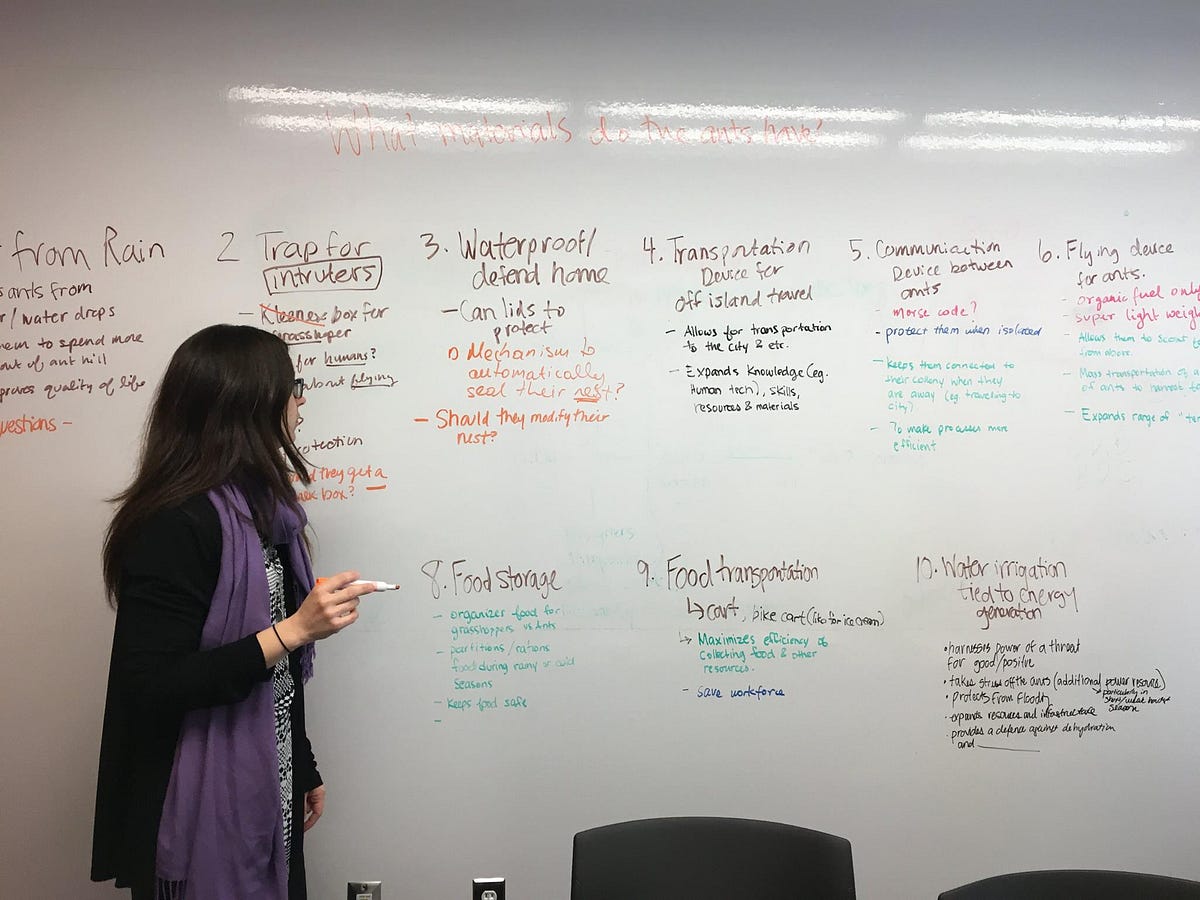 What materials do the ants have?
from Rain
s ants from
r / water drops
hem to spend more
out of ant hill
proves quality of life
uestions -
2 Trap for
intruters
- Kleenex box for
grasshopper
for humans?
about flying
?
rotection
they get a
box?
3. Waterproof/
defend home
- Can lids to
protect
Mechanism to
automatically
seal their nest?
- Should they modify their
nest?
4. Transportation
Device for
off island travel
- Allows for transportation
to the city & etc.
- Expands Knowledge (eg.
Human tech), skills,
resources & materials
5. Communication
Device between
ants
- morse code?
- protect them when isolated
- Keeps them connected to
their colony when they
are away (eg. travelling to
city)
- To make processes more
efficient
6. Flying device
for ants.
- organic fuel only
- super light weigh
- Allows them to scout f
from above.
- Mass transportation of a
of ants to harvest f
- Expands range of "ter
8. Food storage
- organizer food for
grasshoppers vs Ants
- partitions / rations
food during rainy or cold
seasons
- keeps food safe
-
9. Food transportation
↳ cart, bike cart (like for ice cream)
↳ Maximizes efficiency of
collecting food & other
resources.
- save workforce
10. Water irrigation
tied to energy
generation
• harnesses power of a threat
for good/positive
• takes stress off the ants (additional power resource)
particularly in
season
• protects from flooding
• expands resources and infrastructure
• provides a defence against dehydration
and ________